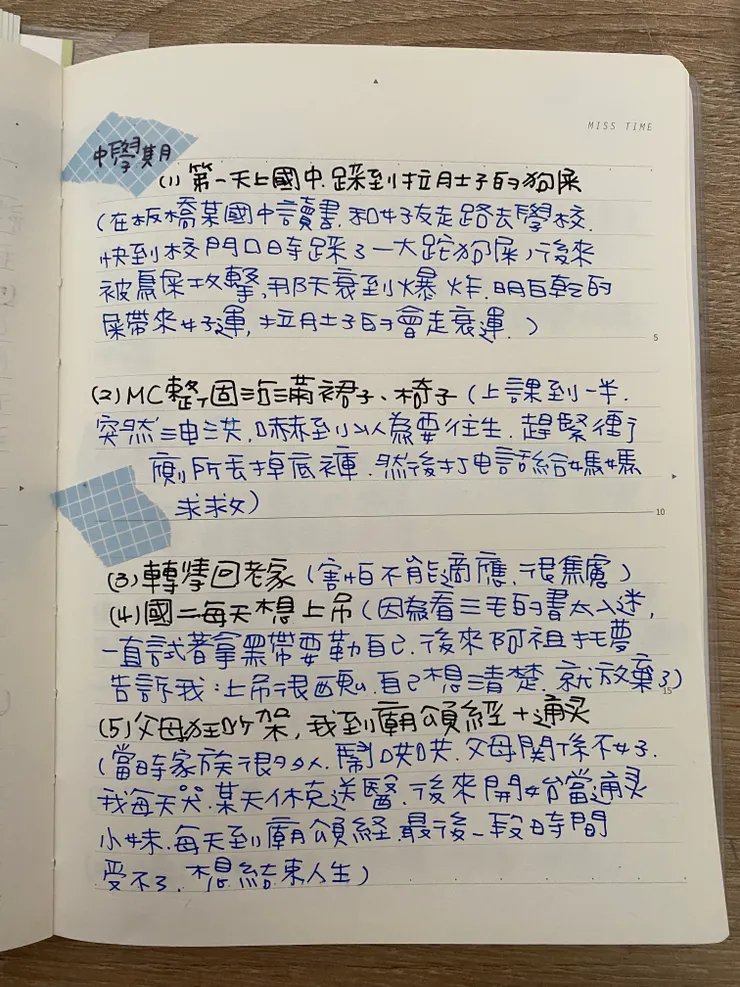 MISS TIME
中學期
(1) 第一天上國中.踩到拉肚子的狗屎
(在板橋某國中讀書.和好友走路去學校.
快到校門口時踩了一大跎狗屎,後來
被鳥屎攻擊,那天衰到爆炸.明白乾的
屎帶來好運,拉肚子的會走衰運.)
5
(2) MC整個沾滿裙子、椅子(上課到一半.
突然血洪,嚇到以為要往生.趕緊衝了
廁所丟掉底褲.然後打电話給媽媽
求救)
10
(3) 轉學回老家(害怕不能適應,很焦慮)
(4) 國二每天想上吊(因為看三毛的書太入迷,
一直試著拿黑帶要勒自己.後來阿祖托夢
告訴我:上吊很醜.自己想清楚.就放棄了)
15
(5) 父母狂吵架,我到廟頌經+通灵
(當時家族很多人.鬧哄哄.父母關係不好.
我每天哭.某天休克送醫.後來開始當通灵
小妹.每天到廟頌経.最後一段時間
受不了.想結束人生)